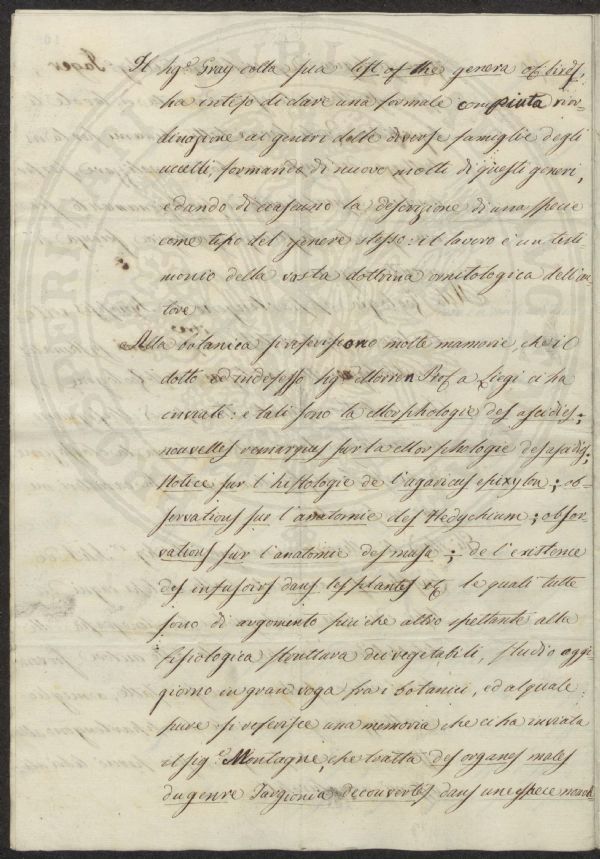 Il Sig.r Gray colla sua list of the genera of birds,
ha inteso di dare una formale compiuta rior-
dinazione ai generi delle diverse famiglie degli
uccelli, formando di nuovo molti di questi generi,
e dando di ciascuno la descrizione di una specie
come tipo del genere stesso: il lavoro è un testi
monio della vasta dottrina ornitologica dell'au-
tore
Alla botanica si riferiscono molte memorie, che il
dotto ed indefesso Sig.r Morren Prof a Liegi ci ha
inviate: e tali sono la Morphologie des ascidies;
nouvelles remarques sur la Morphologie des ascidies;
Notice sur l'histologie de l'agaricus epixylon; ob-
servations sur l'anatomie des Hedychium; obser-
vations sur l'anatomie des musa; de l'existence
des infusoirs dans les plantes &c le quali tutte
sono di argomento più che altro spettante alla
fisiologica struttura dei vegetabili, studio oggi-
giorno in gran voga fra i botanici, ed al quale
pure si riferisce una memoria che ci ha inviata
il sig.r Montagne, che tratta des organes males
du genre Targionia decouvertes dans une espece nouvel